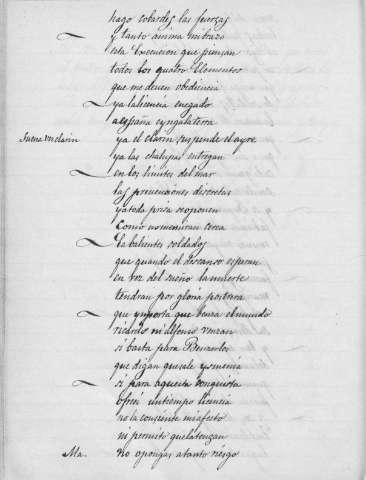 hago cobardes las fuerzas
y tanto anima mi brazo
esta execucion que piensan
todos los quatro Elementos
que me deuen obediencia
ya la licencia e negado
a españa e yngalaterra
Suena vn clarin ya el clarin suspende el ayre
ya las chalupas entregan
en los limites del mar
las preuenciones discretas
ya toda prisa se oponen
como nos miran cerca
Ea balientes soldados
que quando el descanso esperan
en vez del sueño la muerte
tendran por gloria postrera
que ynporta que benza el mundo
ricardo ni alfonso venzan
si basta para
que digan que sale y
si para aquesta conquista
ofreci un tiempo licencia
no la consiente mi afecto
ni permito que la tengan
Ma. No opongas a tanto riesgo